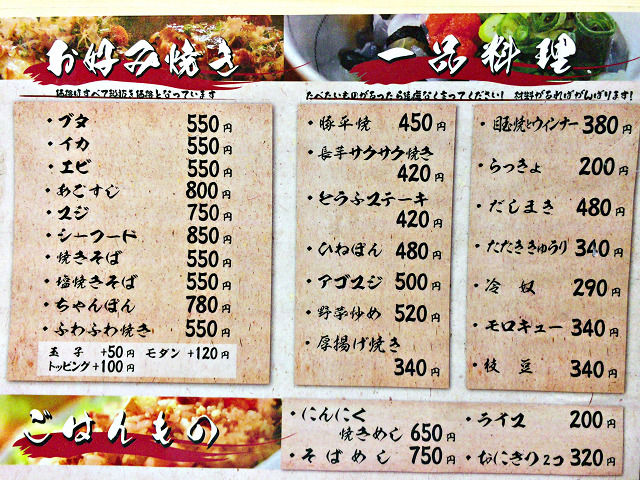 お好み焼き
価格はすべて税抜き価格となっています
・ブタ 550円
・イカ 550円
・エビ 550円
・あごすじ 800円
・スジ 750円
・シーフード 850円
・焼きそば 550円
・塩焼きそば 550円
・ちゃんぽん 780円
・ふわふわ焼き 550円
玉子 +50円 モダン +120円
トッピング +100円
一品料理
たべたいものがあったら遠慮なくまってください! 材料があればがんばります!
・豚平焼 450円
・長芋サクサク焼き
420円
・とうふステーキ
420円
・ひねぽん 480円
・アゴスジ 500円
・野菜炒め 520円
・厚揚げ焼き
340円
・目玉焼とウインナー 380円
・らっきょ 200円
・だしまき 480円
・たたききゅうり 340円
・冷奴 290円
・モロキュー 340円
・枝豆 340円
ごはんもの
・にんにく
焼きめし 650円
・そばめし 750円
・ライス 200円
・おにぎり2コ 320円